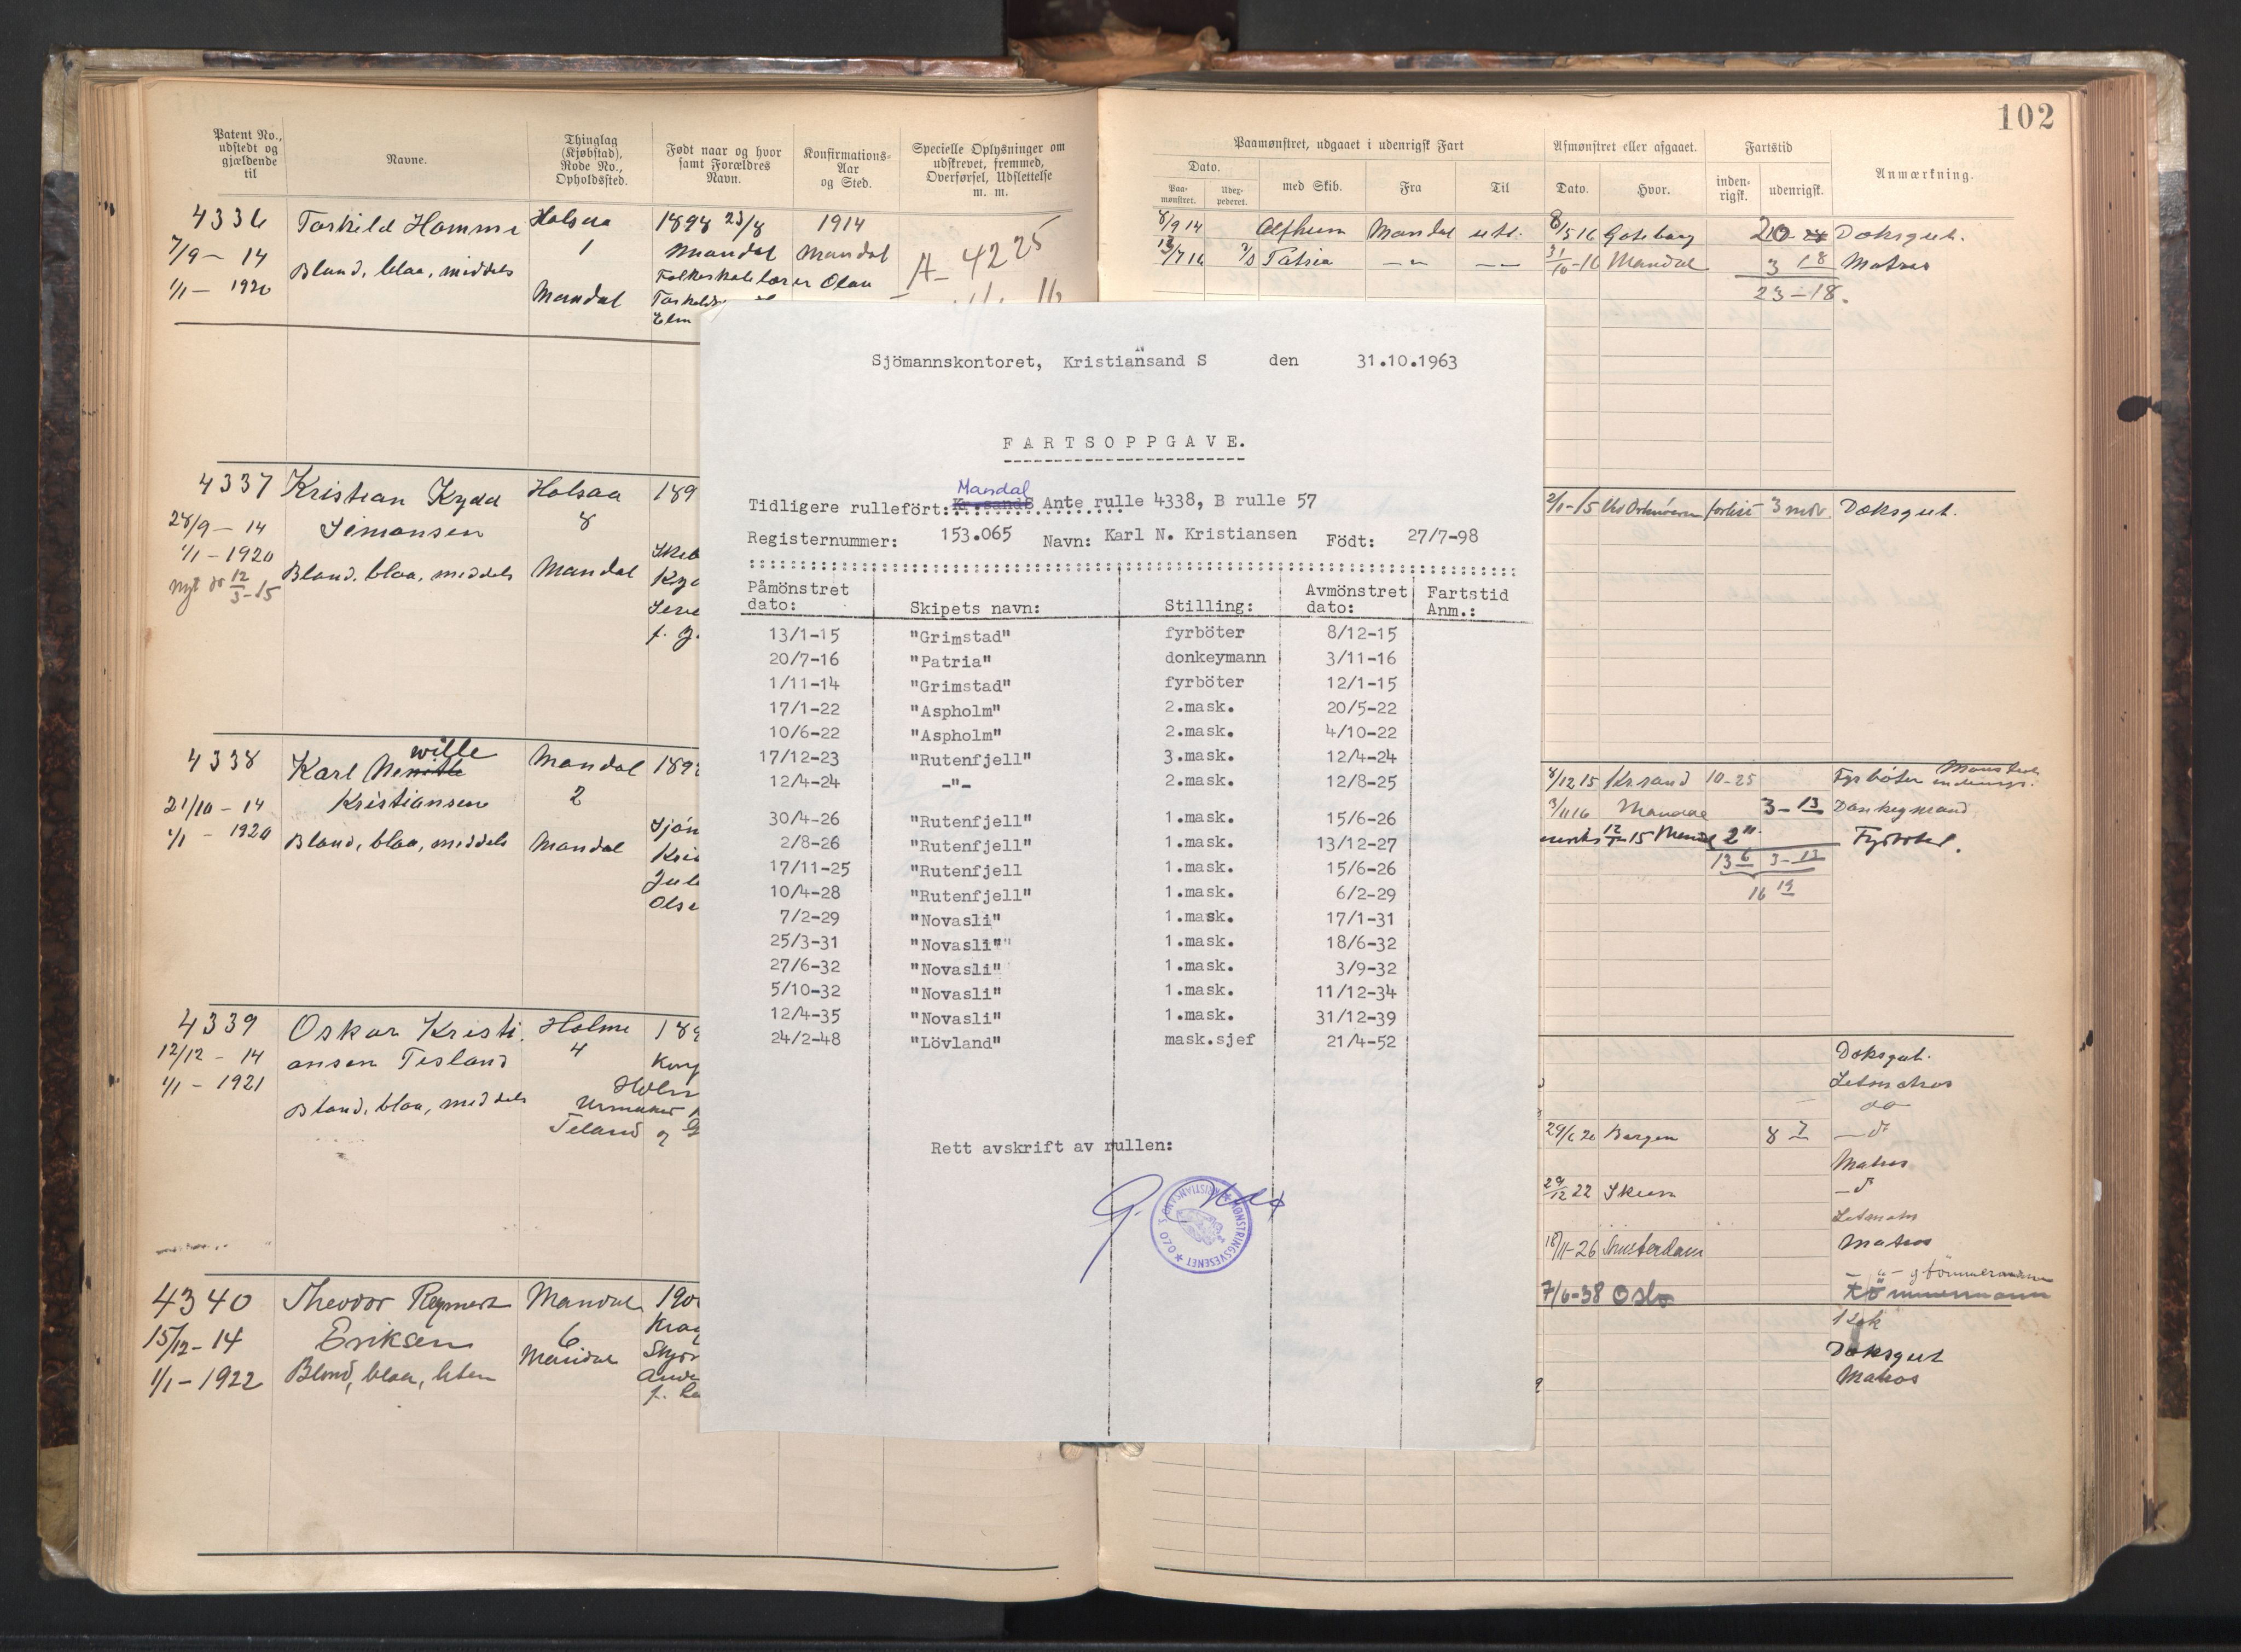 102
Patent No., udstedt og gjældende til
Navne.
Thinglag (Kjøbstad), Rode No., Opholdssted.
Født naar og hvor samt Forældres Navn.
Konfirmations-Aar og Sted.
Specielle Oplysninger om udskrevet, fremmed, Overførsel, Udslettelse m. m.
Paamønstret, udgaaet i udenrigsk Fart
Afmønstret eller afgaaet.
Fartstid
Anmærkning.
Dato.
Paa-mønstret.
med Skib.
Fra
Til
Dato.
Hvor.
inden-rigsk.
udenrigsk.
4336 Torkild Homme Halsaa 1898 23/8 1914
7/9 - 14 1 Mandal Mandal A- 4225
1/1 - 1920 Blond, blaa, middels Mandal Folkeskolelærer Olau
8/9 14 Mandal utl. 8/5 16 Goteborg Doksgut.
Patria 31/10-16 Mandal 3 18 Matros
23-18.
4337 Kristian Kydd Halsaa 189
28/9 - 14 Simonsen 8
1/1 - 1920 Blond, blaa, middels Mandal
12/3-15
2/1-15 forlist 3 mdr. Doksgut.
4338 Karl Neville Mandal 189
21/10 - 14 Kristiansen 2
1/1 - 1920 Blond, blaa, middels Mandal
8/12 15 Kr.sand 10-25 Fyrböter
3/11 16 Mandal 3-13 Donkeymand
12/1-15 Mandal Fyrböter.
13 6 3-13
16 19
4339 Oskar Kristi. Holme 189
12/12 - 14 ansen Tisland 4
1/1 - 1921 Blond, blaa, middels
Doksgut.
Letmatros
do
29/6 20 Bergen 8 7
Matros
29/12 22 Skien
Letmatr
18/11-26 Amsterdam Matros
7/6-38 Oslo
4340 Theodor Reymert Mandal 190
15/12 - 14 Eriksen 6 Mandal
1/1 - 1922 Blond, blaa, liten
Doksgut
Matros
Sjömannskontoret, Kristiansand S den 31.10.1963
FARTSOPPGAVE.
Mandal
Tidligere rulleført: Kr.sand S Ante rulle 4338, B rulle 57
Registernummer: 153.065 Navn: Karl N. Kristiansen Födt: 27/7-98
Påmönstret dato: Skipets navn: Stilling: Avmönstret dato: Fartstid Anm.:
13/1-15 "Grimstad" fyrböter 8/12-15
20/7-16 "Patria" donkeymann 3/11-16
1/11-14 "Grimstad" fyrböter 12/1-15
17/1-22 "Aspholm" 2.mask. 20/5-22
10/6-22 "Aspholm" 2.mask. 4/10-22
17/12-23 "Rutenfjell" 3.mask. 12/4-24
12/4-24 -"- 2.mask. 12/8-25
30/4-26 "Rutenfjell" 1.mask. 15/6-26
2/8-26 "Rutenfjell" 1.mask. 13/12-27
17/11-25 "Rutenfjell 1.mask. 15/6-26
10/4-28 "Rutenfjell" 1.mask. 6/2-29
7/2-29 "Novasli" 1.mask. 17/1-31
25/3-31 "Novasli" 1.mask. 18/6-32
27/6-32 "Novasli" 1.mask. 3/9-32
5/10-32 "Novasli" 1.mask. 11/12-34
12/4-35 "Novasli" 1.mask. 31/12-39
24/2-48 "Lövland" mask.sjef 21/4-52
Rett avskrift av rullen:
MØNSTRINGSVESENET ★ 070 KRISTIANSAND S. ★